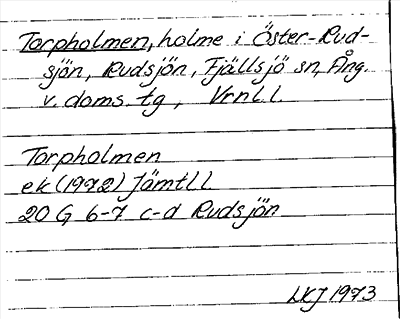 Torpholmen, holme i Öster-Rud-
sjön, Rudsjön, Fjällsjö sn, Ång.
v. doms. tg, Vrnl. l.
Torpholmen
ek (1972) Jämtl l
20 G 6-7 c-d Rudsjön
LKJ 1973